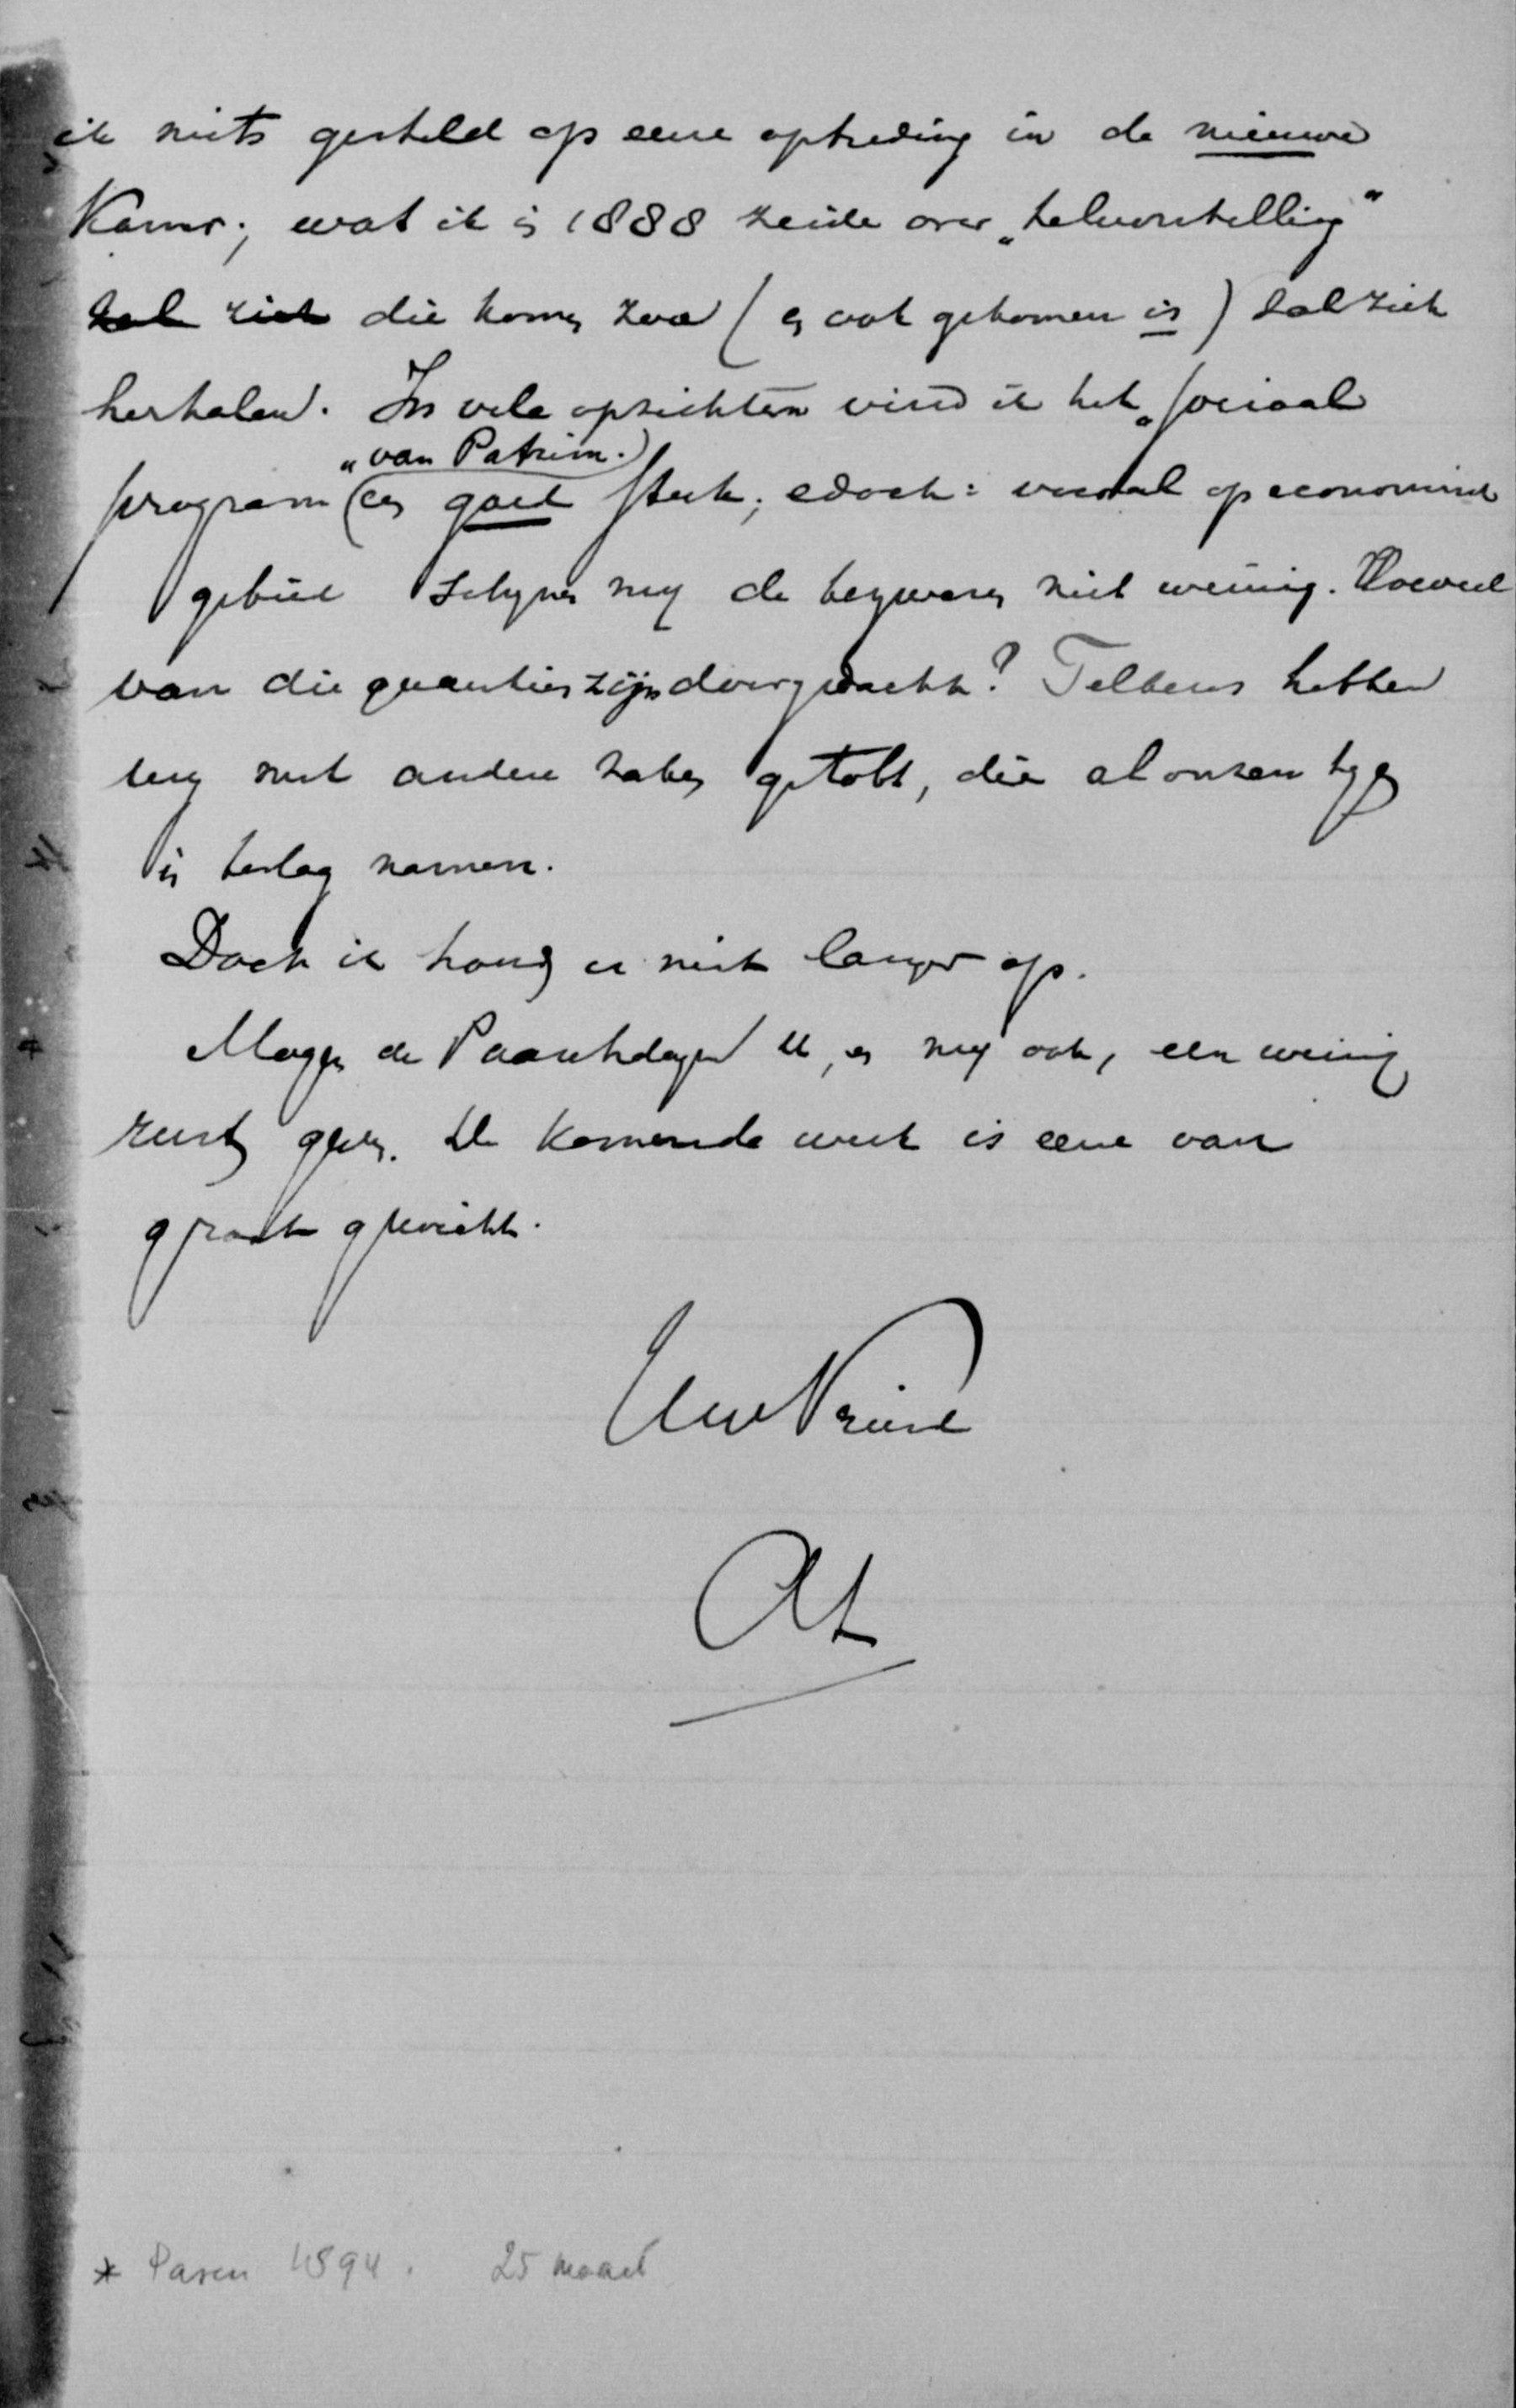 ik niets gesteld op eene optreding in de nieuwe
Kamer; wat ik in 1888 zeide over „teleurstelling”
zal zich die komen zou (en ook gekomen is) zal zich
herhalen. In vele opzichten vind ik het „sociaal
program” (van Patrim.) een goed stuk; edoch: vooral op economisch
gebied schijnen mij de bezwaren niet weinig. Hoeveel
van die quaesties zijn doorgedacht? Telkens hebben
wij met andere zaken getobt, die al onzen tijd
in beslag namen.
Doch ik houd u niet langer op.
Mogen de Paaschdagen u, en mij ook, een weinig
rust geven. De komende week is eene van
groot gewicht.
Uw Vriend
AL
* Pasen 1894. 25 maart